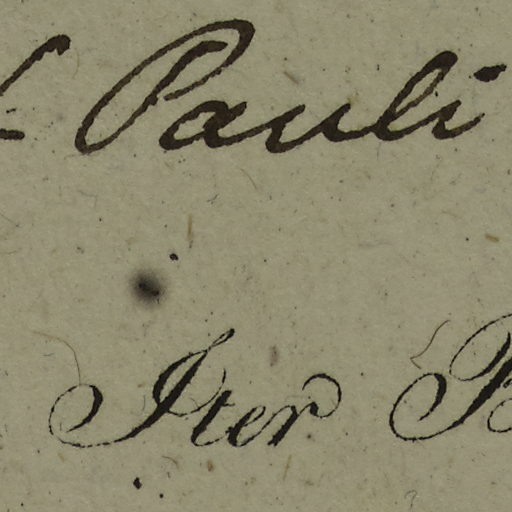 Pauli
Iter